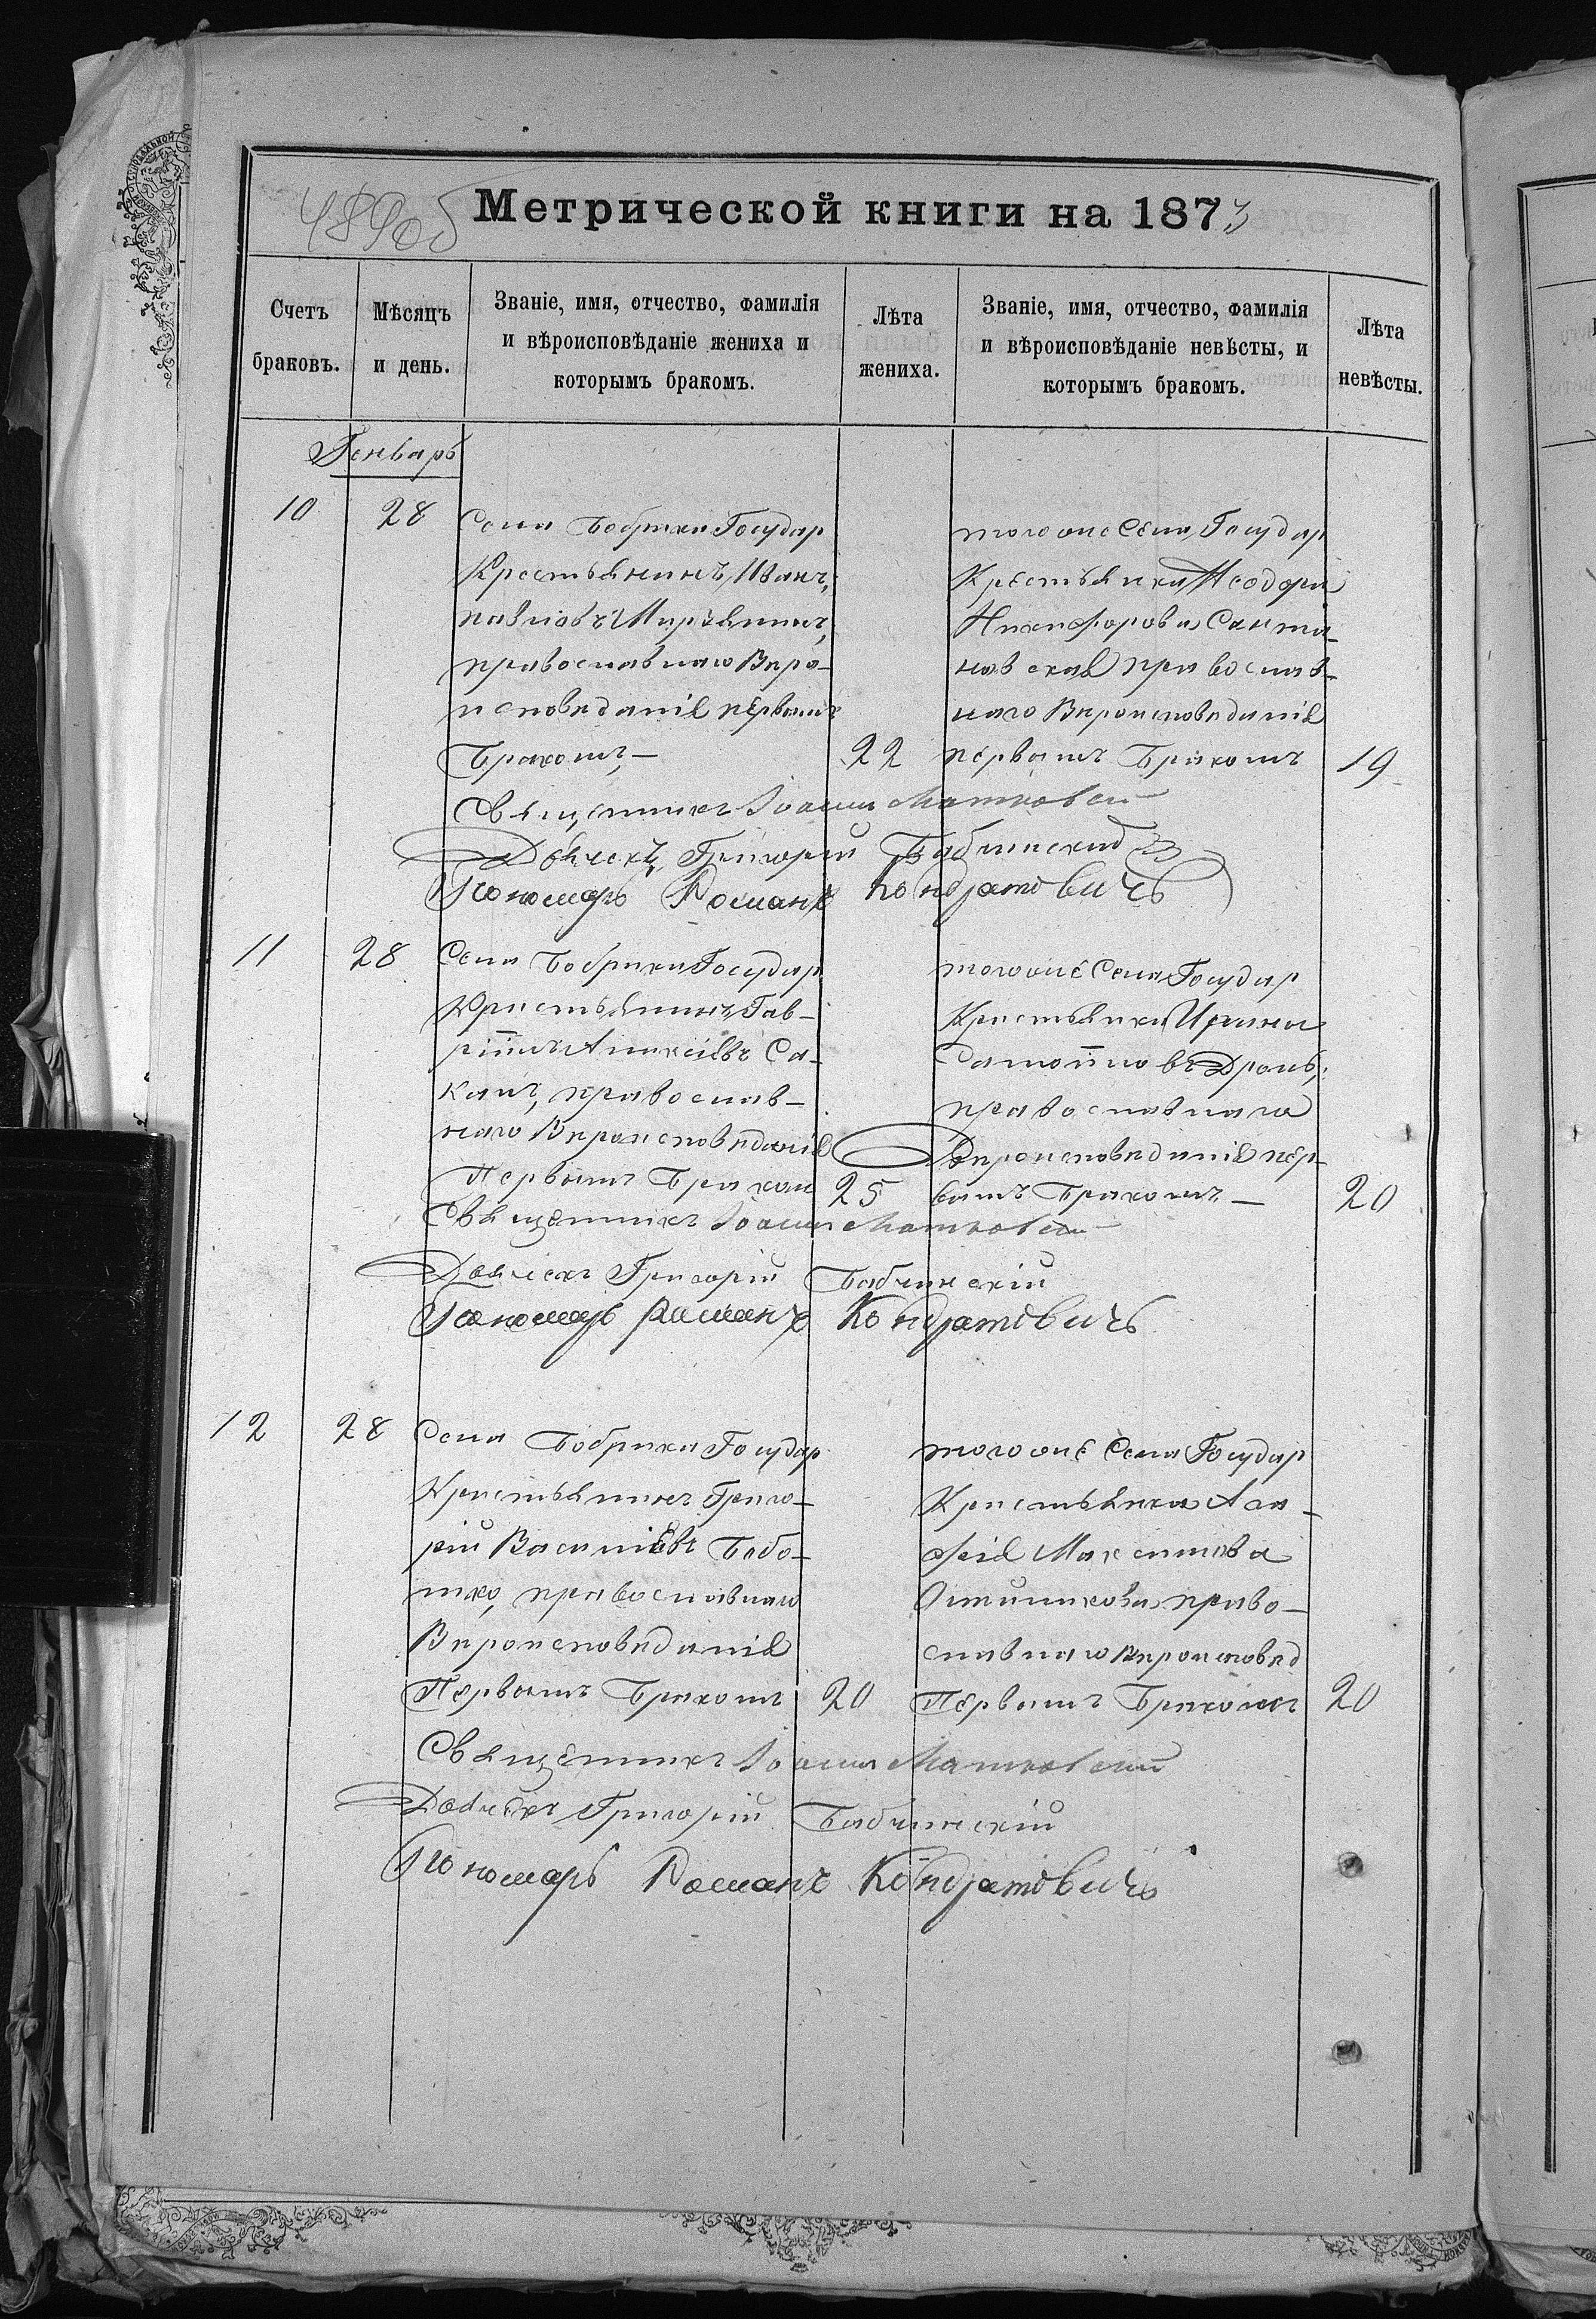 489об
Метрической книги на 1873
Счетъ браковъ.
Мѣсяцъ и день.
Званіе, имя, отчество, фамилія и вѣроисповѣданіе жениха и которымъ бракомъ.
Лѣта жениха.
Званіе, имя, отчество, фамилія и вѣроисповѣданіе невѣсты, и которымъ бракомъ.
Лѣта невѣсты.
Генварь
10 28
Села Бобрика Государ
Крестьянинъ, Иванъ,
павловъ
православнаго Вѣро-
исповѣданія первымъ
Бракомъ, — 22
тогоже Села Государ
Крестьянка Ѳеодора
Никифорова
православ-
наго Вѣроисповѣданія
первымъ Бракомъ 19
Священникъ Іоаннъ
Дьячекъ, Григорій Бабчинский
Пономарь Романъ Кондратовичъ
11 28
Села Бобрика Государ
Кристьянинъ Гав-
ріилъ Алексіевъ
православ-
наго Вѣроисповѣданія
Первымъ Браком 25
тогоже Села Государ
Кристьянка Ирина
православнаго
Вѣроисповѣданія пер-
вымъ Бракомъ — 20
Священникъ Іоаннъ
Дьячекъ Григорій Бабчинскій
Пономарь Романъ Кондратовичъ
12 28
Села Бобрика Государ
Кристьянинъ Григо-
рій Василіевъ
православнаго
Вѣроисповѣданія
Первымъ Бракомъ 20
тогоже Села Государ
Кристьянка
Максимова
право-
славнаго Вѣроисповѣд
Первымъ Бракомъ 20
Священникъ Іоаннъ
Дьячекъ Григорій Бабчинскій
Пономарь Романъ Кондратовичъ